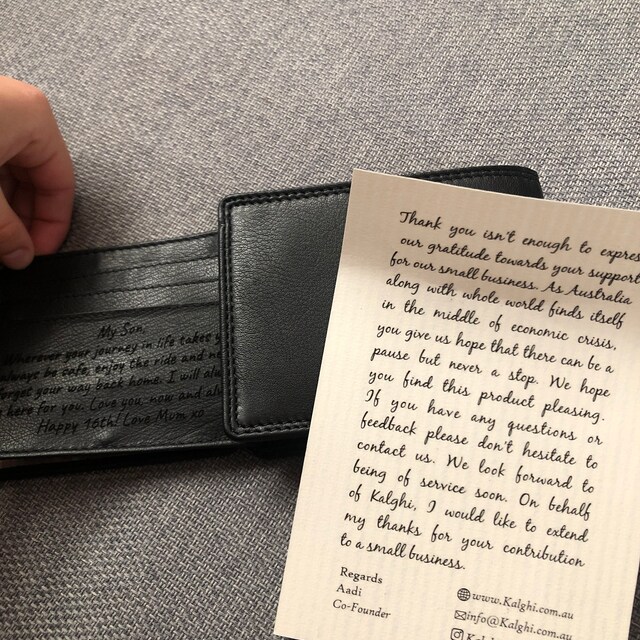 My Son,
Wherever your journey in life takes
always be safe, enjoy the ride and
forget your way back home. I will
here for you. Love you now and
Happy 16th! Love Mum xo
Thank you isn't enough to express
our gratitude towards your support
for our small business. As Australia
along with whole world finds itself
in the middle of economic crisis,
you give us hope that there can be a
pause but never a stop. We hope
you find this product pleasing.
If you have any questions or
feedback please don't hesitate to
contact us. We look forward to
being of service soon. On behalf
of Kalghi, I would like to extend
my thanks for your contribution
to a small business.
Regards
Aadi
Co-Founder
www.Kalghi.com.au
info@Kalghi.com.au